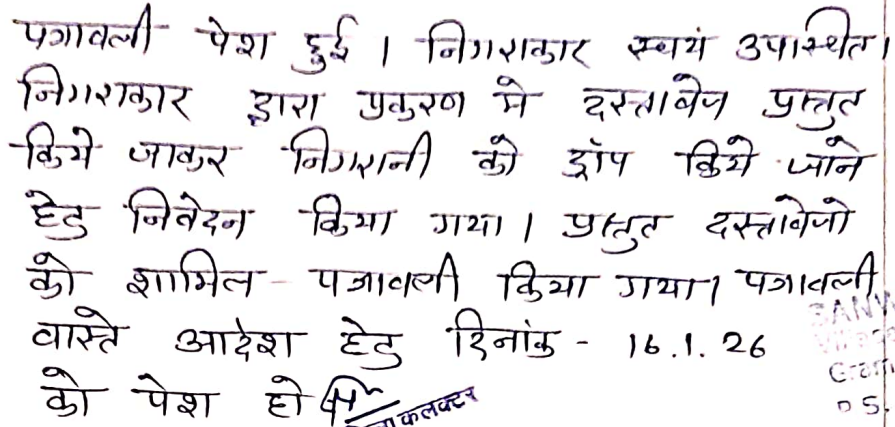 पत्रावली पेश हुई । निगराकार स्वयं उपस्थित।
निगराकार द्वारा प्रकरण मे दस्तावेज प्रस्तुत
किये जाकर निगरानी को ड्रॉप किये जाने
हेतु निवेदन किया गया । प्रस्तुत दस्तावेजो
को शामिल - पत्रावली किया गया। पत्रावली
वास्ते आदेश हेतु दिनांक - 16.1.26
को पेश हो
कलक्टर